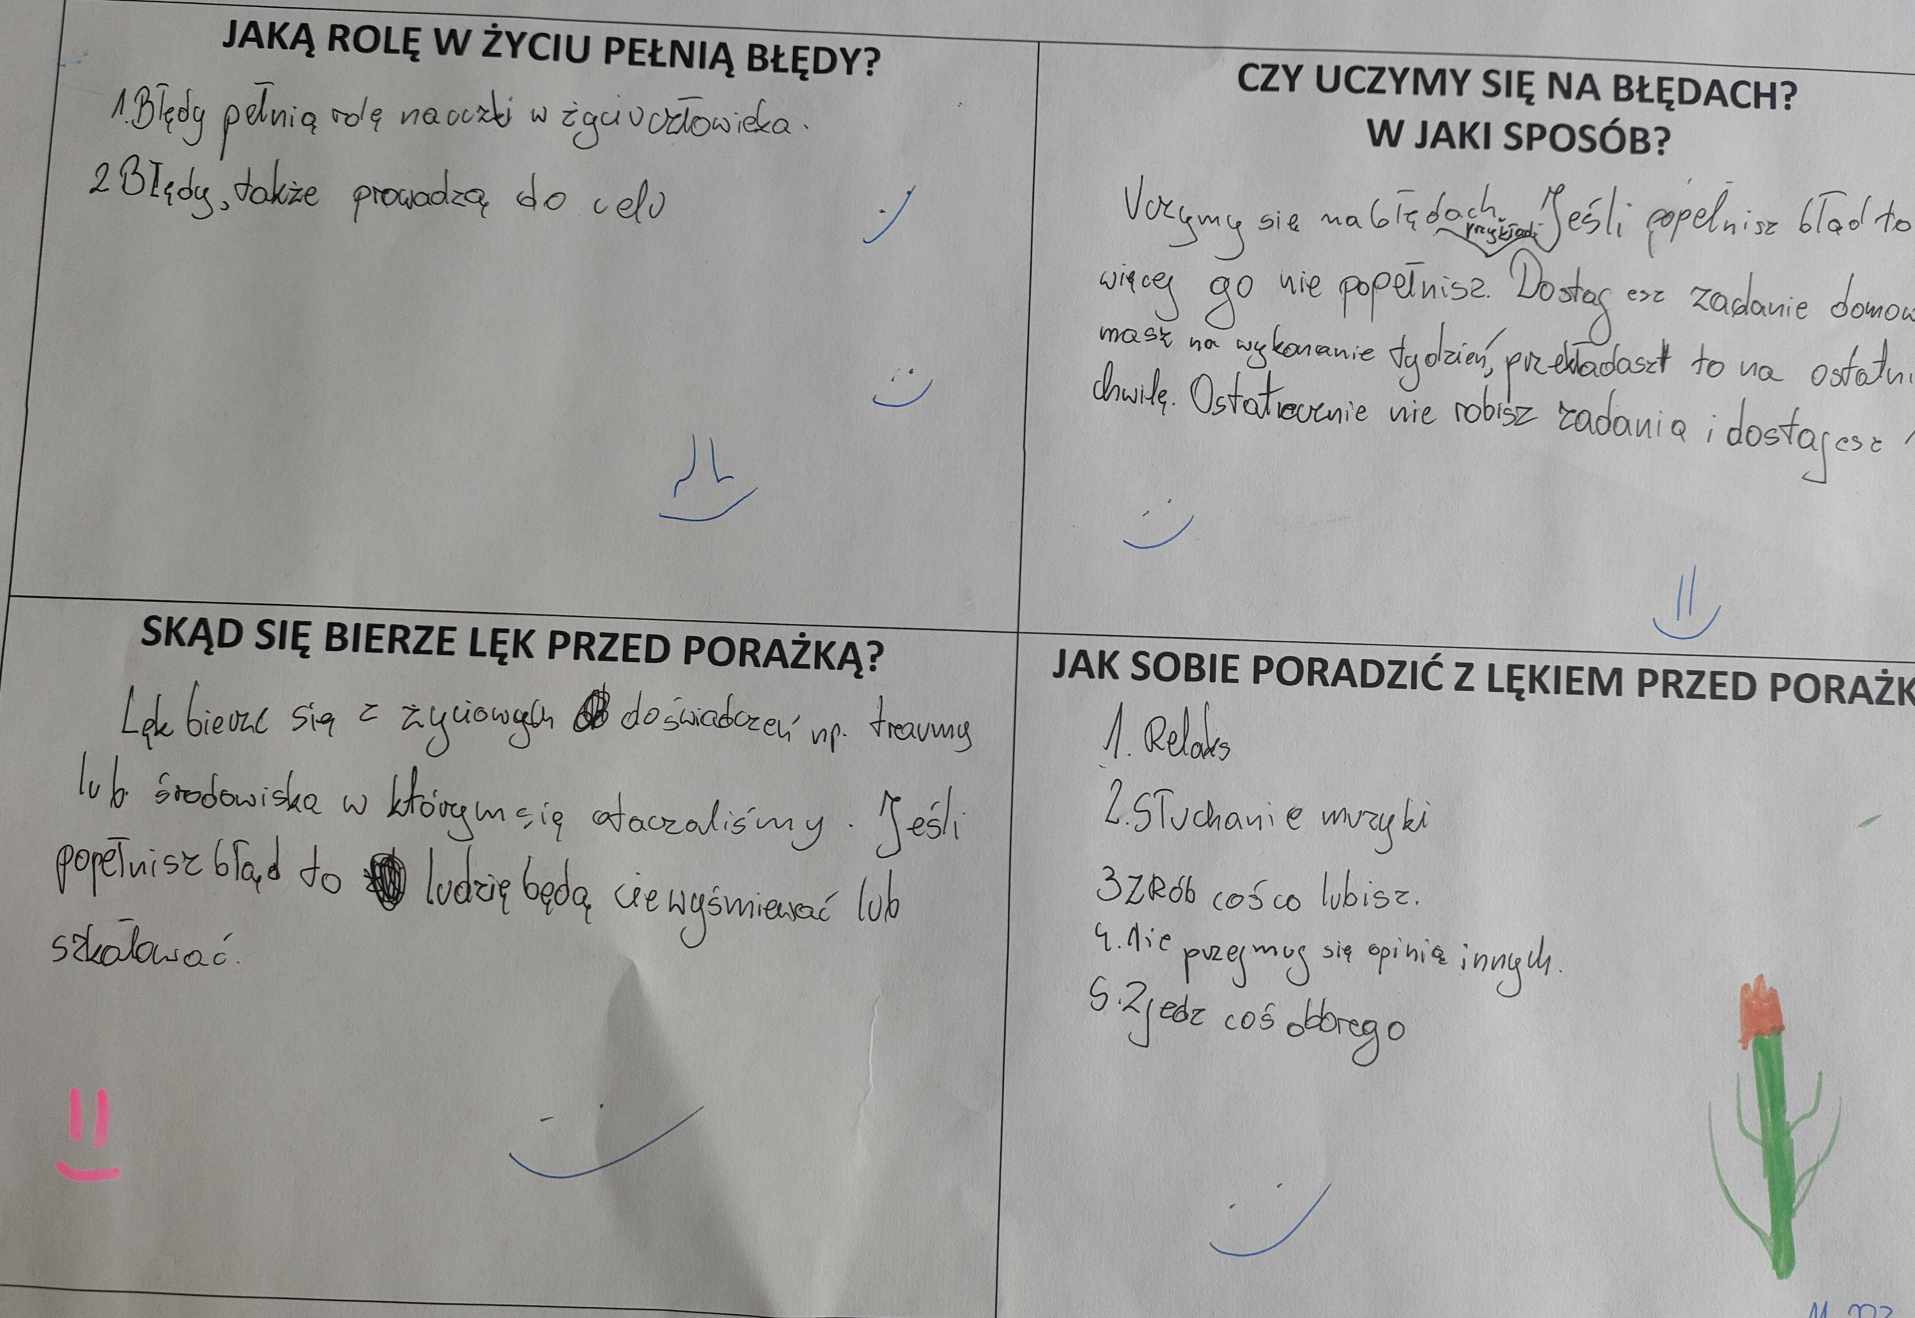 JAKĄ ROLĘ W ŻYCIU PEŁNIĄ BŁĘDY?
1. Błędy pełnią rolę naoczki w życiu człowieka.
2 Błędy, także prowadzą do celu
CZY UCZYMY SIĘ NA BŁĘDACH?
W JAKI SPOSÓB?
Uczymy się na błędach. Jeśli popełnisz błąd to
przykład:
więcej go nie popełnisz. Dostajesz zadanie domow
masz na wykonanie tydzień, przekładasz to na ostatni
chwilę. Ostatecznie nie robisz zadania i dostajesz
SKĄD SIĘ BIERZE LĘK PRZED PORAŻKĄ?
Lęk bierze się z życiowych doświadczeń np. traumy
lub środowiska w którym się otaczaliśmy. Jeśli
popełnisz błąd to ludzię będą cie wyśmiewać lub
szkalować.
JAK SOBIE PORADZIĆ Z LĘKIEM PRZED PORAŻK
1. Relaks
2. Słuchanie muzyki
3 ZRób coś co lubisz.
4. Nie przejmuj się opinią innych.
5. Zjedz coś dobrego